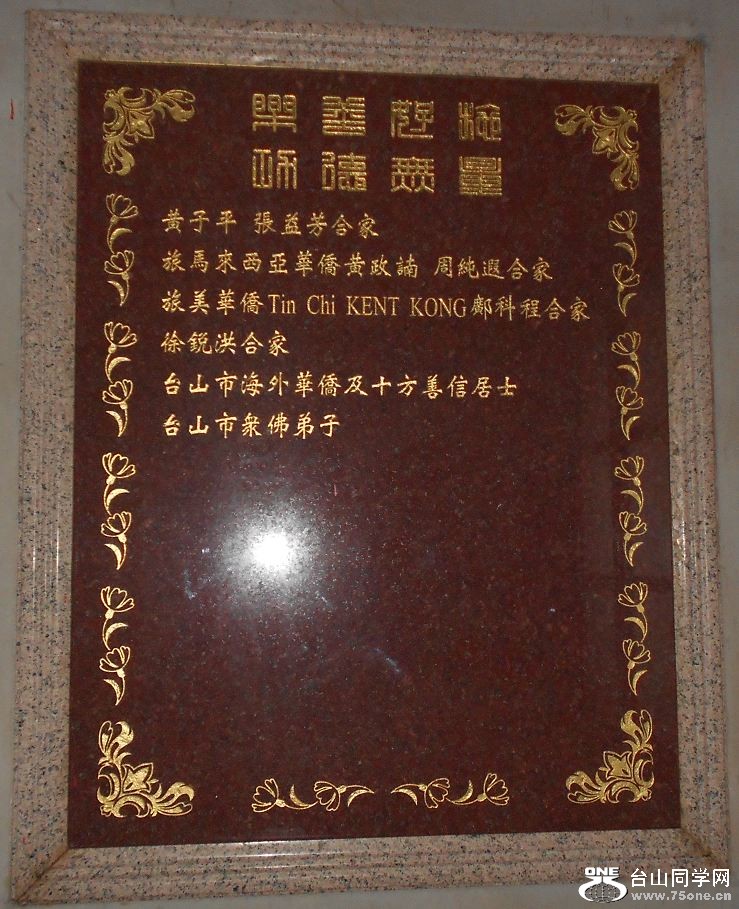 樂善好施
功德無量
黃子平 張益芳合家
旅馬來西亞華僑黃政諵 周純遐合家
旅美華僑Tin Chi KENT KONG鄺科程合家
徐銳洪合家
台山市海外華僑及十方善信居士
台山市衆佛弟子
ONE 台山同学网
www.75one.cn